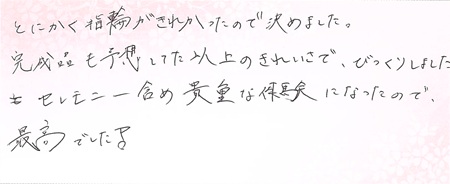 とにかく指輪がきれいかったので決めました。
完成品も予想してた以上のきれいさで、びっくりしました
セレモニー含め貴重な体験になったので、
最高でした